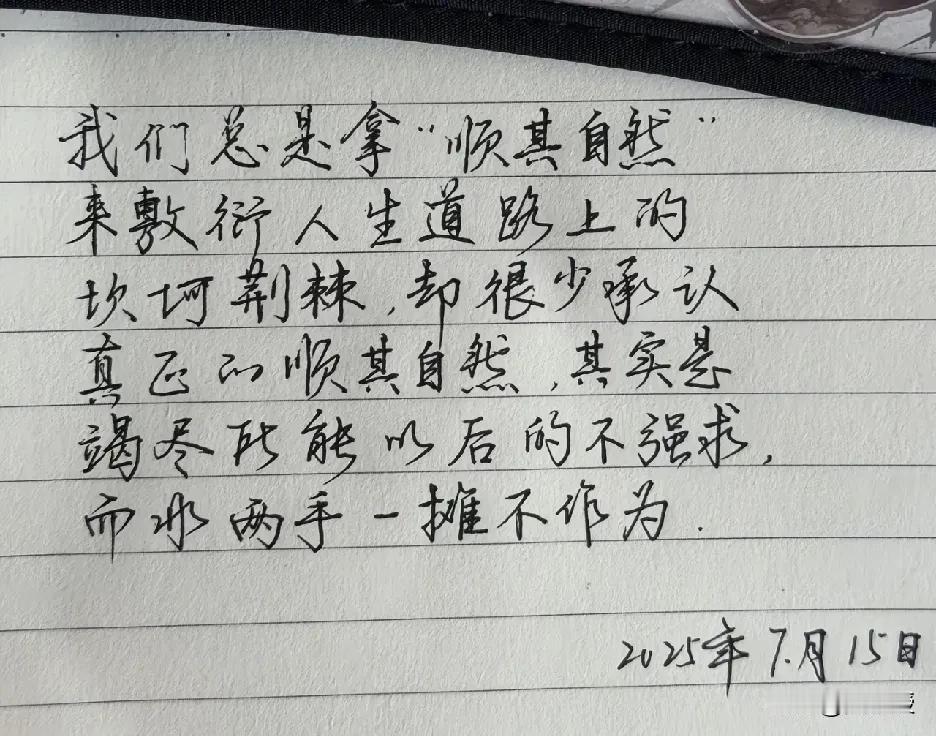 我们总是拿“顺其自然”
来敷衍人生道路上的
坎坷荆棘,却很少承认
真正的顺其自然,其实是
竭尽所能以后的不强求,
而非两手一摊不作为.
2025年7.月15日